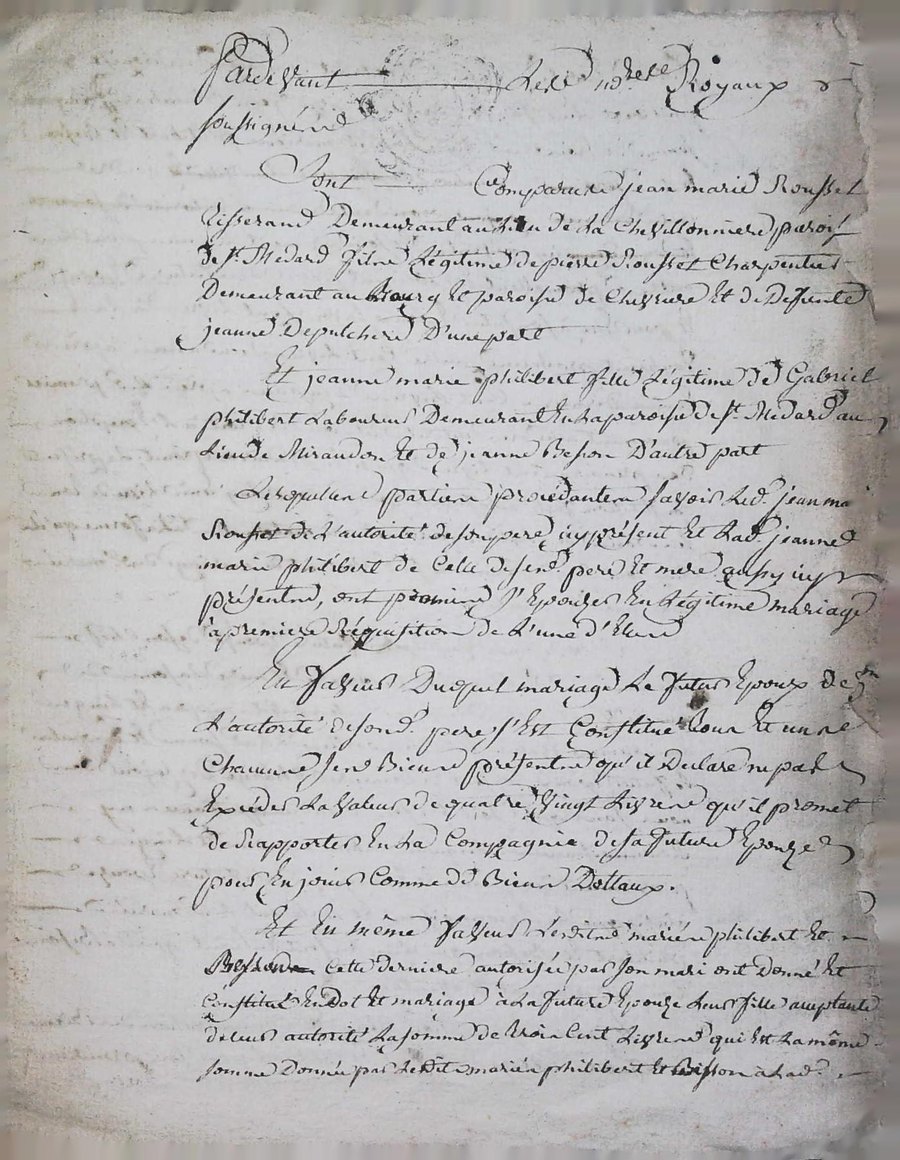 Pardevant Les No.res Royaux
soussignés
Sont Comparus jean marie Rousset
Tisserand Demeurant au Lieu de La Chevillonniere parois.
de St. Medard fils Légitime de pierre Rousset Charpentier
Demeurant au Bourg Et paroisse de Chevriere Et de Defunte
jeanne Depulchere D'une part
Et jeanne marie philibert fille Légitime de Gabriel
philibert Laboureur Demeurant En La paroisse de St. Medard au
Lieu de Mirandon Et de jeanne Besson D'autre part
Lesquelles parties procédantes savoir Led. jean ma
Rousset de L'autorité de son pere icy présent Et Lad. jeanne
marie philibert de Celle de ses d. pere Et mere aussy icy
présents, ont promis s'Epouser En Légitime mariage
à premiere Réquisition de L'une d'Elles
En faveur Duquel mariage Le futur Epoux de
L'autorité de son d. pere s'Est Constitué tous Et uns
Chacuns ses Biens présents qu'il Declare ne pas
Exceder La valeur de quatre vingt Livres qu'il promet
de Rapporter En La Compagnie de sa future Epouze
pour En jouir Comme de Biens Dottaux.
Et En même faveur Lesdits mariés philibert Et
Besson cette derniere autorisée par son mari ont Donné Et
Constitué En Dot Et mariage à La future Epouze Leur fille acceptante
de leur autorité La somme de trois Cent Livres qui Est La même
somme Donnée par Lesdit mariés philibert Et Besson à Lad.